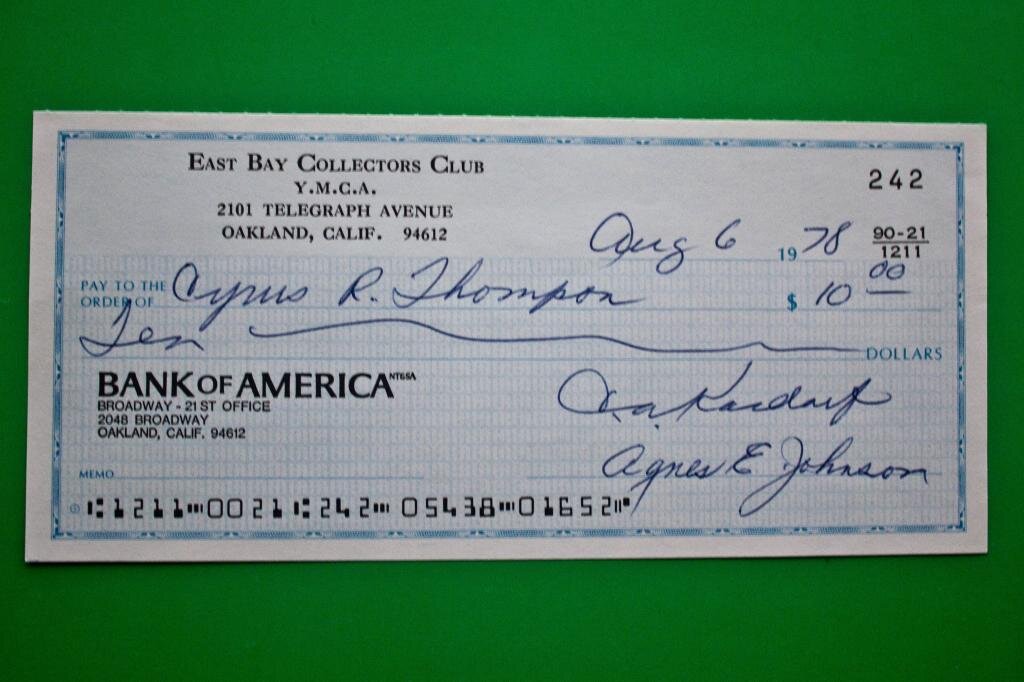 EAST BAY COLLECTORS CLUB
Y.M.C.A.
2101 TELEGRAPH AVENUE
OAKLAND, CALIF. 94612
242
Aug 6 1978
90-21
1211
PAY TO THE ORDER OF Cyrus R. Thompson $ 10 00
Ten DOLLARS
BANK OF AMERICA NT&SA
BROADWAY - 21ST OFFICE
2048 BROADWAY
OAKLAND, CALIF. 94612
Agnes E Johnson
MEMO
⑆1211⑉0021⑆242⑉05438⑉01652⑈